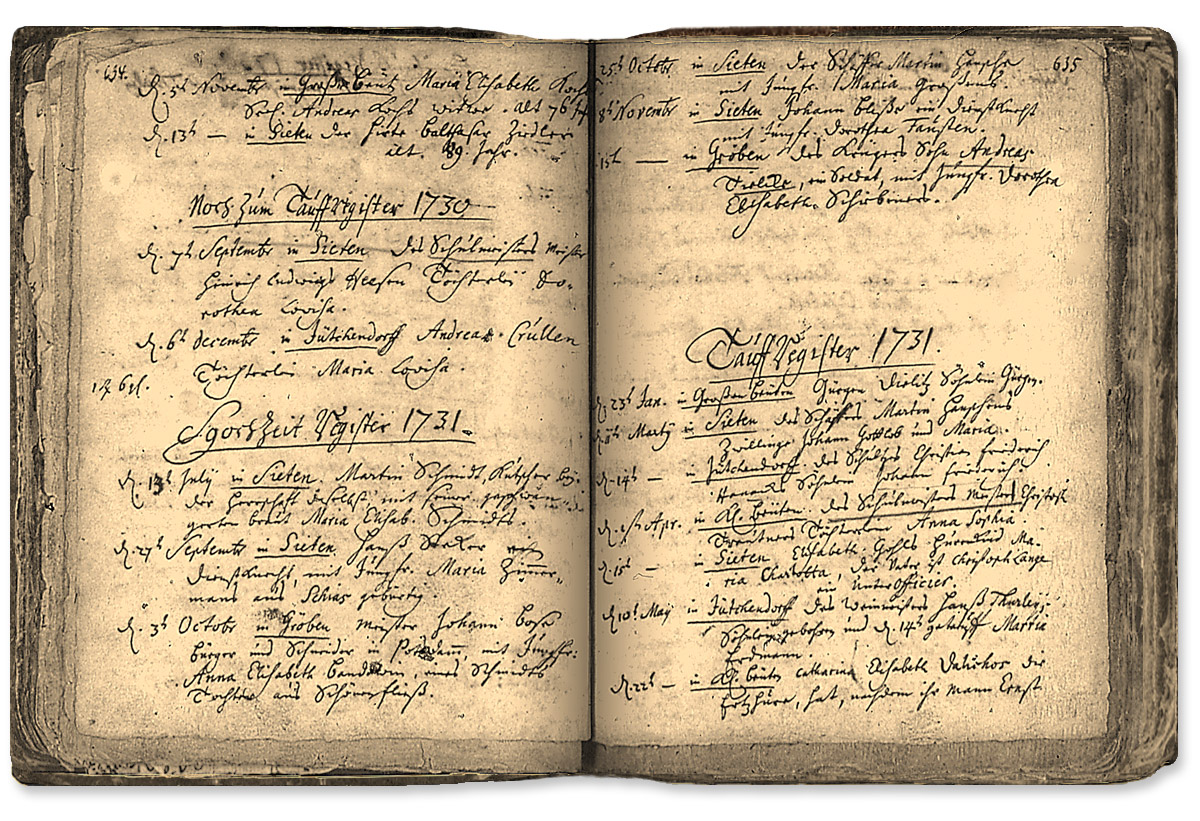 634.
d. 5t Novembr in Großen Beut Maria Elisabeth Koch
Sel. Andreas Kochs witwe. alt 76 J
d. 13t — in Sieten der Hirte Balthasar Ziedler
alt. 89 Jahr.
Noch zum Tauff Register 1730
d. 7t Septembr in Sieten des Schulmeisters Meister
Hinrich Ludwigs Heesen Töchterlein Do-
rothea Lovisa.
d. 6t Decembr in Jütchendorff Andreas Crüllen
Töchterlein Maria Lovisa.
Hochzeit Register 1731.
d. 13t July in Sieten. Martin Schmidt, Kutscher bey
der Herrschafft daselbst mit seiner
Braut Maria Elisab. Schmidts.
d. 27t Septembr in Sieten Hanß ein
Dienstknecht, mit Jungfr. Maria Zimmer-
mans aus gebürtig.
d. 3t Octobr in Gröben Meister Johann
Bürger und Schneider in Potsdam, mit Jungfr:
Anna Elisabeth eines Schmidts
Tochter aus Schönerfließ.
635
25t Octobr in Sieten der Schäffer Martin
mit Jungfr. Maria
8t Novembr in Sieten Johann ein Dienstknecht
mit Jungfr. Dorothea Fausten.
15t — in Gröben des Krügers Sohn Andreas
ein Soldat, mit Jungfr. Dorothea
Elisabeth Schirbiners.
Tauff Register 1731.
d. 23t Jan. in Großen Beuten Gürgen Dielitz Söhnlein Gürgen.
Marty in Sieten des Schäffers Martin
Zwillinge Johann Gottlob und Maria.
d. 14t — in Jütchendorff. des Schultzen Christian Friedrich
Söhnlein Johann Friederich
d. 1t Apr. in Kl. Beuten. des Schulmeisters Meister Christoph
Töchterlein Anna Sophia.
d. 15t — in Sieten Elisabeth Gohls Hurenkind Ma-
ria Charlotta, der Vater ist Christoph Lange
ein Unter Officier.
d. 10t May in Jütchendorff des Weinmeisters Hanß Thurley
Söhnlein gebohren und d. 14t getaufft Martin
Erdmann.
d. 22t — in Kl. Beuten Catharina Elisabeth die
Ertzhure, hat, nachdem ihr Mann Ernst